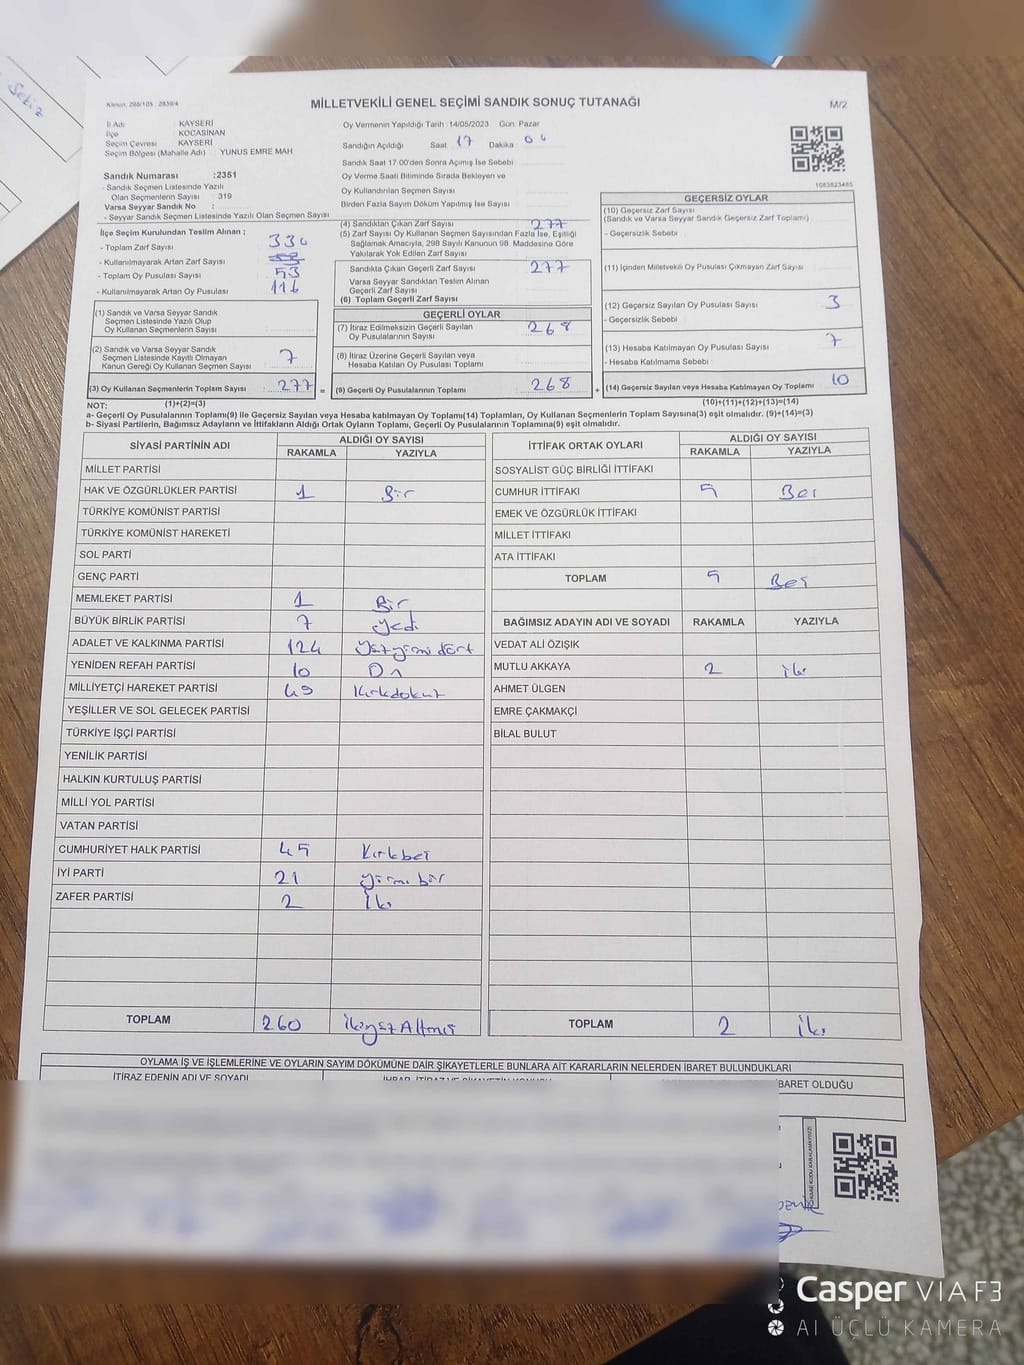 Setiz
Kanun: 298/105 ; 2839/4
MİLLETVEKİLİ GENEL SEÇİMİ SANDIK SONUÇ TUTANAĞI
M/2
İl Adı KAYSERİ
İlçe KOCASİNAN
Seçim Çevresi KAYSERİ
Seçim Bölgesi (Mahalle Adı) YUNUS EMRE MAH
Sandık Numarası :2351
- Sandık Seçmen Listesinde Yazılı
Olan Seçmenlerin Sayısı : 319
Varsa Seyyar Sandık No :
- Seyyar Sandık Seçmen Listesinde Yazılı Olan Seçmen Sayısı
Oy Vermenin Yapıldığı Tarih :14/05/2023 Gün: Pazar
Sandığın Açıldığı Saat 17 Dakika 04
Sandık Saat 17:00'den Sonra Açımış İse Sebebi
Oy Verme Saati Bitiminde Sırada Bekleyen ve
Oy Kullandırılan Seçmen Sayısı
Birden Fazla Sayım Döküm Yapılmış İse Sayısı
1083823485
İlçe Seçim Kurulundan Teslim Alınan ;
- Toplam Zarf Sayısı 330
- Kullanılmayarak Artan Zarf Sayısı 53
- Toplam Oy Pusulası Sayısı
- Kullanılmayarak Artan Oy Pusulası 116
(1) Sandık ve Varsa Seyyar Sandık
Seçmen Listesinde Yazılı Olup
Oy Kullanan Seçmenlerin Sayısı
(2) Sandık ve Varsa Seyyar Sandık
Seçmen Listesinde Kayıtlı Olmayan
Kanun Gereği Oy Kullanan Seçmen Sayısı 7
(3) Oy Kullanan Seçmenlerin Toplam Sayısı : 277 =
(1)+(2)=(3)
(4) Sandıktan Çıkan Zarf Sayısı 277
(5) Zarf Sayısı Oy Kullanan Seçmen Sayısından Fazla İse, Eşitliği
Sağlamak Amacıyla, 298 Sayılı Kanunun 98. Maddesine Göre
Yakılarak Yok Edilen Zarf Sayısı
Sandıkta Çıkan Geçerli Zarf Sayısı 277
Varsa Seyyar Sandıklardan Teslim Alınan
Geçerli Zarf Sayısı
(6) Toplam Geçerli Zarf Sayısı
GEÇERLİ OYLAR
(7) İtiraz Edilmeksizin Geçerli Sayılan
Oy Pusulalarının Sayısı 268
(8) İtiraz Üzerine Geçerli Sayılan veya
Hesaba Katılan Oy Pusulası Toplamı
(9) Geçerli Oy Pusulalarının Toplamı 268 +
GEÇERSİZ OYLAR
(10) Geçersiz Zarf Sayısı
(Sandık ve Varsa Seyyar Sandık Geçersiz Zarf Toplamı)
- Geçersizlik Sebebi
(11) İçinden Milletvekili Oy Pusulası Çıkmayan Zarf Sayısı
(12) Geçersiz Sayılan Oy Pusulası Sayısı 3
- Geçersizlik Sebebi
(13) Hesaba Katılmayan Oy Pusulası Sayısı 7
- Hesaba Katılmama Sebebi
(14) Geçersiz Sayılan veya Hesaba Katılmayan Oy Toplamı 10
(10)+(11)+(12)+(13)=(14)
NOT:
a- Geçerli Oy Pusulalarının Toplamı(9) ile Geçersiz Sayılan veya Hesaba katılmayan Oy Toplamı(14) Toplamları, Oy Kullanan Seçmenlerin Toplam Sayısına(3) eşit olmalıdır. (9)+(14)=(3)
b- Siyasi Partilerin, Bağımsız Adayların ve İttifakların Aldığı Ortak Oyların Toplamı, Geçerli Oy Pusulalarının Toplamına(9) eşit olmalıdır.
SİYASİ PARTİNİN ADI ALDIĞI OY SAYISI
RAKAMLA YAZIYLA
MİLLET PARTİSİ
HAK VE ÖZGÜRLÜKLER PARTİSİ 1 Bir
TÜRKİYE KOMÜNİST PARTİSİ
TÜRKİYE KOMÜNİST HAREKETİ
SOL PARTİ
GENÇ PARTİ
MEMLEKET PARTİSİ 1 Bir
BÜYÜK BİRLİK PARTİSİ 7 Yedi
ADALET VE KALKINMA PARTİSİ 124 Yüzyirmi dört
YENİDEN REFAH PARTİSİ 10 On
MİLLİYETÇİ HAREKET PARTİSİ 49 Kırkdokuz
YEŞİLLER VE SOL GELECEK PARTİSİ
TÜRKİYE İŞÇİ PARTİSİ
YENİLİK PARTİSİ
HALKIN KURTULUŞ PARTİSİ
MİLLİ YOL PARTİSİ
VATAN PARTİSİ
CUMHURİYET HALK PARTİSİ 45 Kırkbeş
İYİ PARTİ 21 Yirmi bir
ZAFER PARTİSİ 2 İki
TOPLAM 260 İkiyüzAltmış
İTTİFAK ORTAK OYLARI ALDIĞI OY SAYISI
RAKAMLA YAZIYLA
SOSYALİST GÜÇ BİRLİĞİ İTTİFAKI
CUMHUR İTTİFAKI 5 Beş
EMEK VE ÖZGÜRLÜK İTTİFAKI
MİLLET İTTİFAKI
ATA İTTİFAKI
TOPLAM 5 Beş
BAĞIMSIZ ADAYIN ADI VE SOYADI RAKAMLA YAZIYLA
VEDAT ALİ ÖZIŞIK
MUTLU AKKAYA 2 iki
AHMET ÜLGEN
EMRE ÇAKMAKÇİ
BİLAL BULUT
TOPLAM 2 iki
OYLAMA İŞ VE İŞLEMLERİNE VE OYLARIN SAYIM DÖKÜMÜNE DAİR ŞİKAYETLERLE BUNLARA AİT KARARLARIN NELERDEN İBARET BULUNDUKLARI
İTİRAZ EDENİN ADI VE SOYADI
BARET OLDUĞU
Casper VIA F3
AI ÜÇLÜ KAMERA